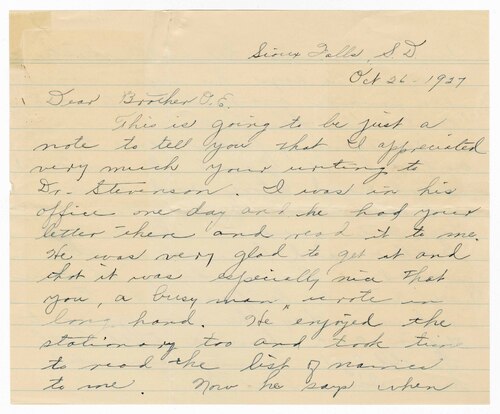 Sioux Falls, S.D
Oct 26 - 1927
Dear Brother O.E.
This is going to be just a
note to tell you that I appreciated
very much your writing to
Dr. Stevenson. I was in his
office one day and he had your
letter there and read it to me.
He was very glad to get it and
that it was especially nice that
you, a busy man, wrote in
long hand. He enjoyed the
stationary too and took time
to read the list of names
to me. Now he says when